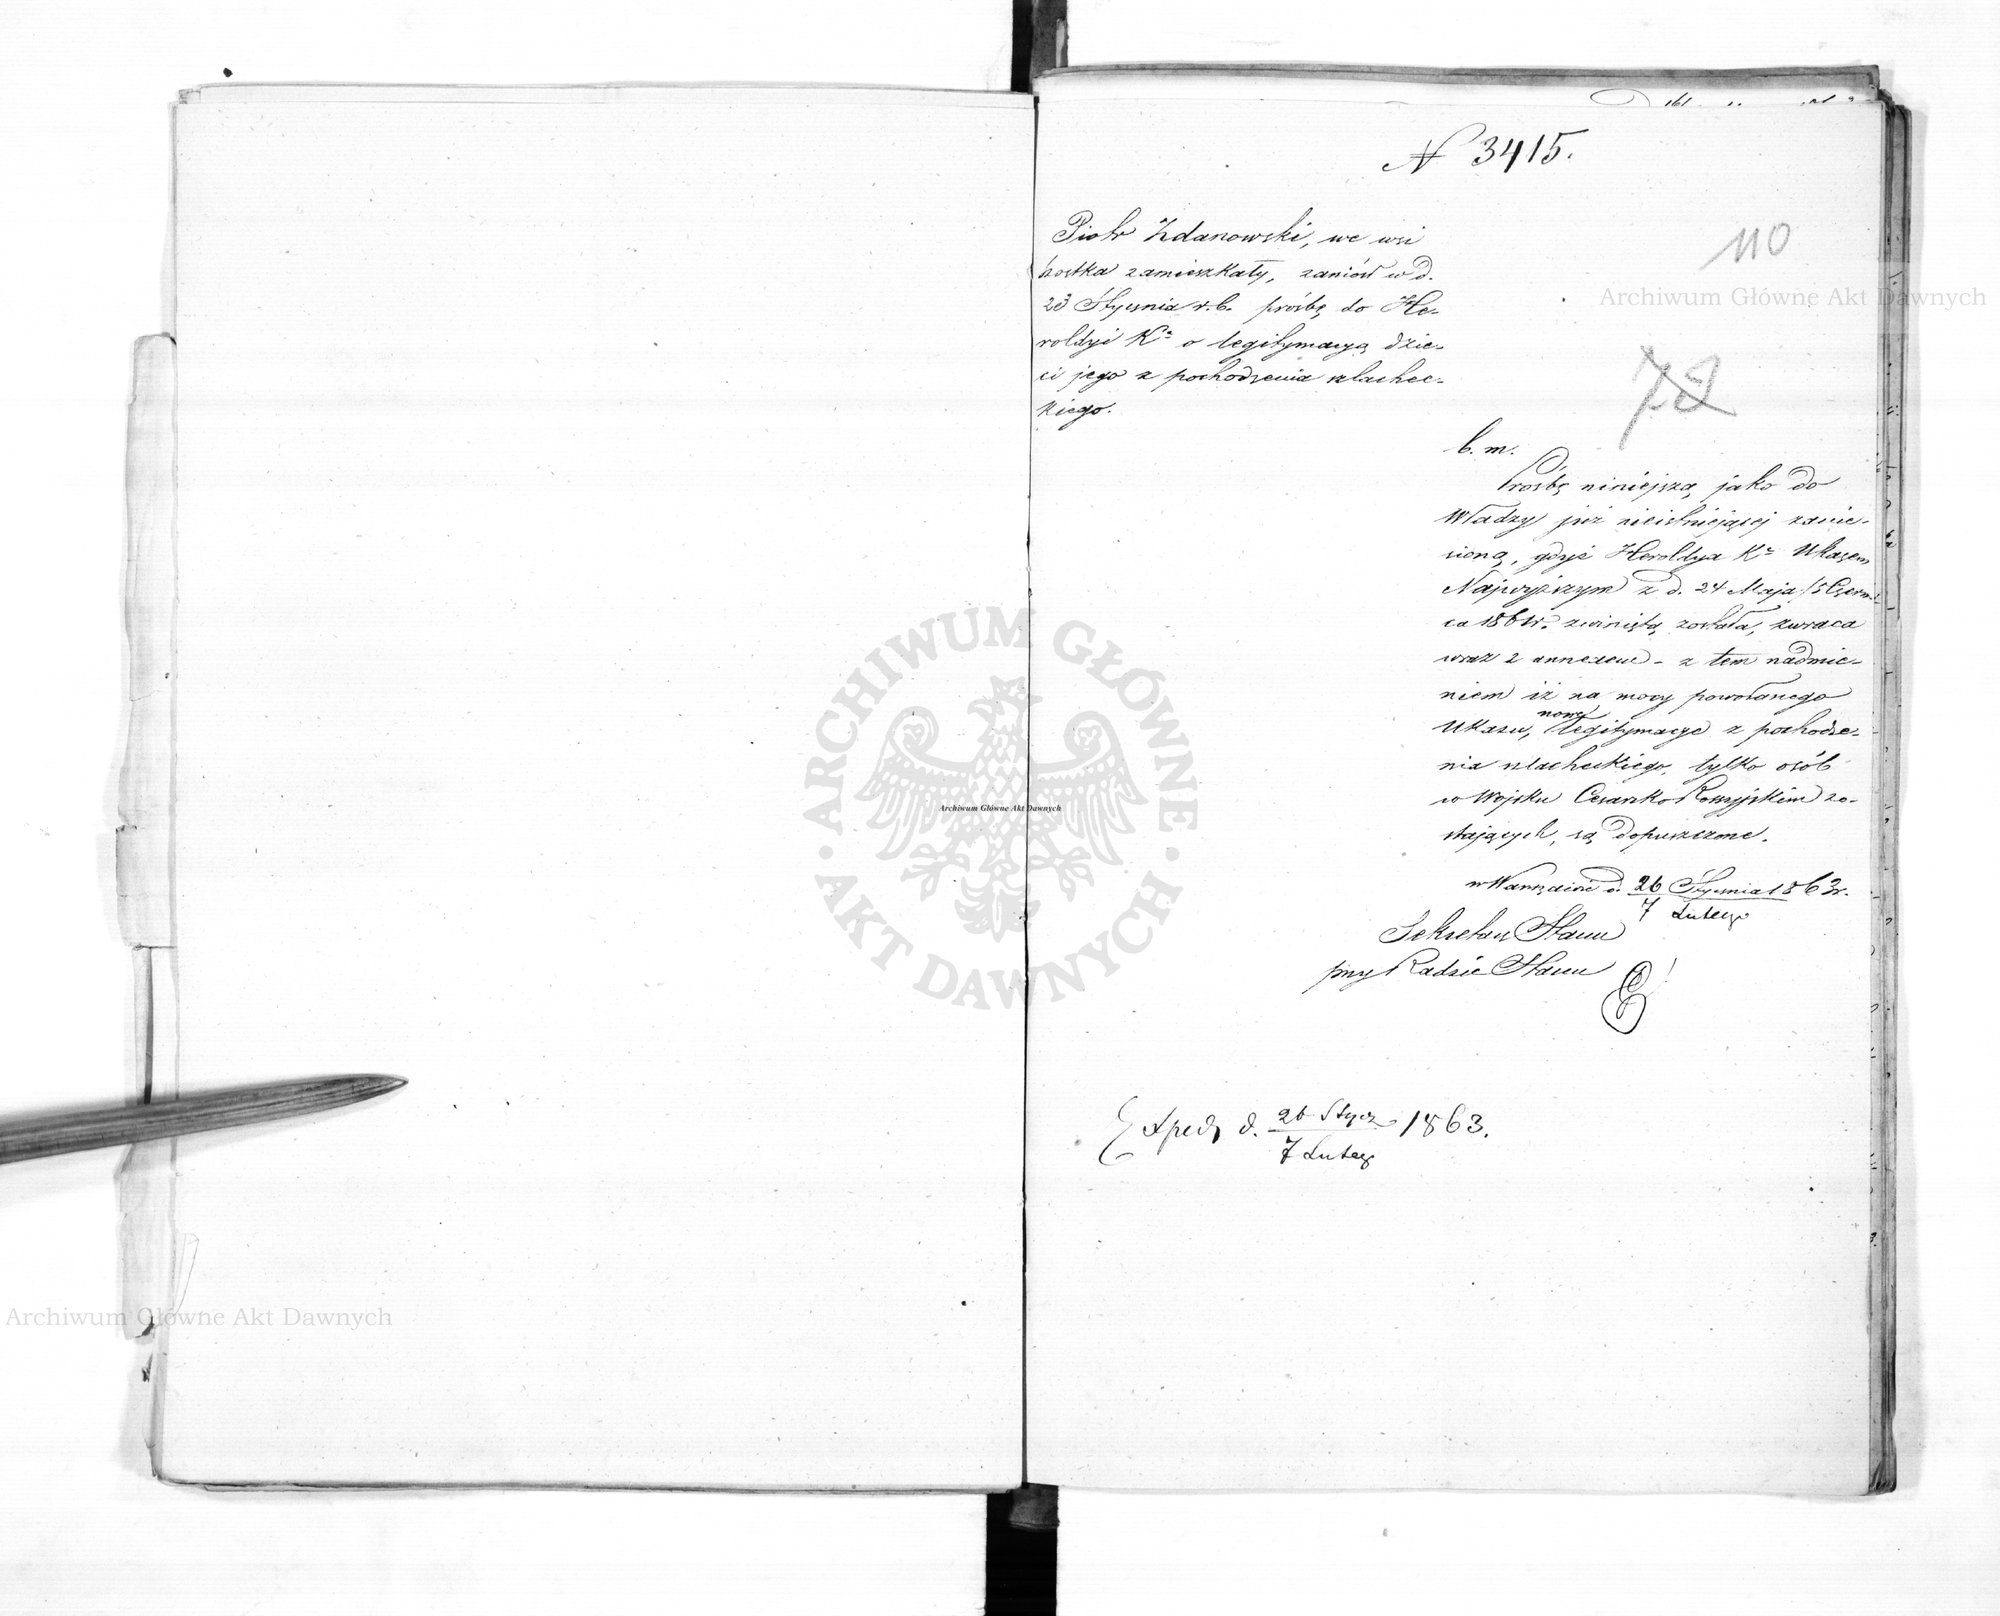 N 3415.
110
Archiwum Główne Akt Dawnych
72
Piotr Zdanowski, we wsi
zamieszkały, zaniósł w d.
23 Stycznia r. b. prośbę do He-
roldyi K<sup>a</sup> o legitymacyą dzie-
ci jego z pochodzenia szlachec-
kiego.
b. m.
Prośbę niniejszą jako do
Władzy już nieistniejącej zanie-
sioną, gdyż Heroldya K<sup>a</sup> Ukazem
Najwyższym z d. 24 Maja/5 Czerw-
ca 1861 r. zwiniętą została, zwraca
wraz z annexem - z tem nadmie-
niem iż na mocy powołanego
Ukazu, nowe legitymacye z pochodze-
nia szlacheckiego, tylko osób
w Wojsku Cesarsko Rossyjskim zo-
stających, są dopuszczone.
w Warszawie d. 26 Stycznia 1863 r.
7 Lutego
Sekretarz Stanu
przy Radzie Stanu
Exped d. 26 Stycz 1863.
7 Lutego
ARCHIWUM GŁÓWNE AKT DAWNYCH
Archiwum Główne Akt Dawnych
Archiwum Główne Akt Dawnych